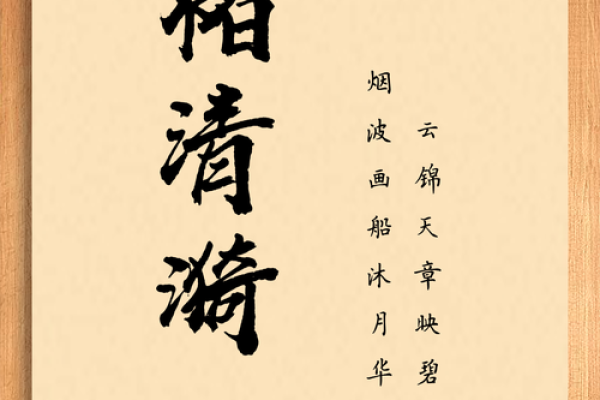 云锦天章映碧
烟波画船沐月华
清漪